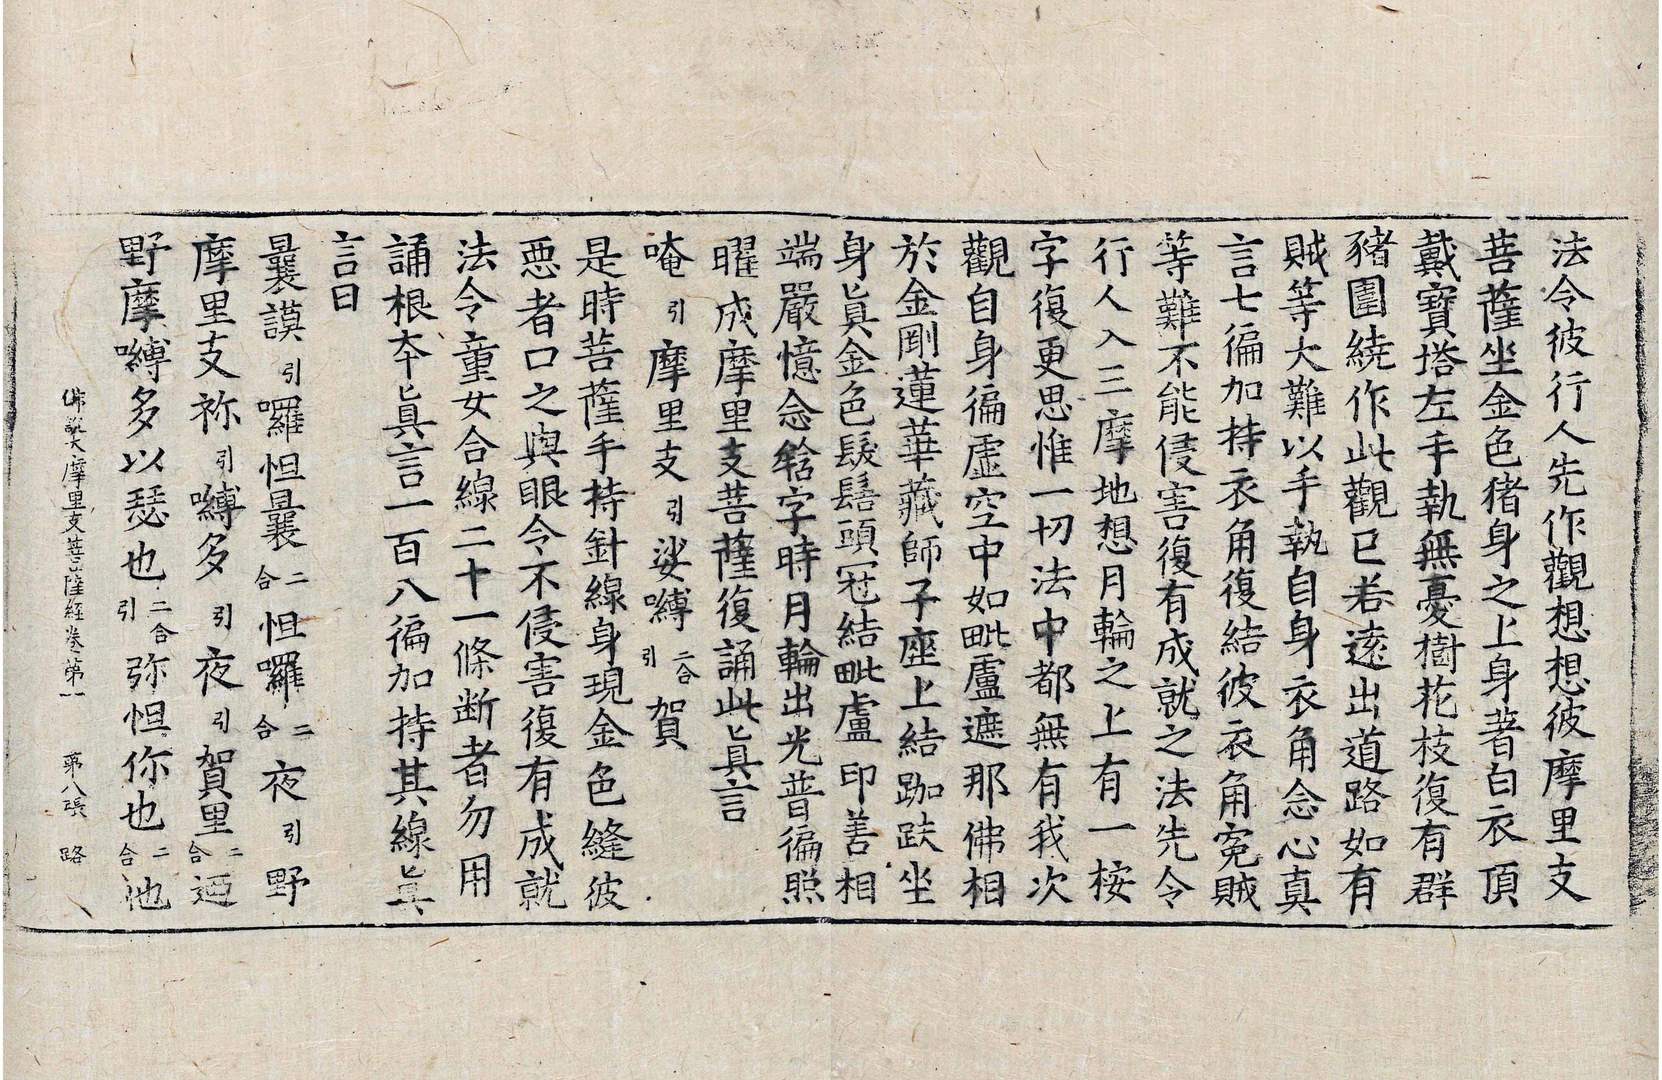 法令彼行人先作觀想想彼摩里支
菩薩坐金色猪身之上身著白衣頂
戴寶塔左手執無憂樹花枝復有群
豬圍繞作此觀已若遠出道路如有
賊等大難以手執自身衣角念心真
言七徧加持衣角復結彼衣角寃賊
等難不能侵害復有成就之法先令
行人入三摩地想月輪之上有一桉
字復更思惟一切法中都無有我次
觀自身徧虛空中如毗盧遮那佛相
於金剛蓮華藏師子座上結跏趺坐
身眞金色髮髻頭冠結毗盧印善相
端嚴憶念唅字時月輪出光普徧照
曜成摩里支菩薩復誦此眞言
唵引摩里支引娑嚩二合引賀
是時菩薩手持針線身現金色縫彼
惡者口之與眼令不侵害復有成就
法令童女合線二十一條断者勿用
誦根本眞言一百八徧加持其線眞
言曰
曩謨引囉怛曩二合怛囉二合夜引野
摩里支祢引嚩多引夜引賀里二合迺
野摩嚩多以瑟也二合引弥怛你也二合池
佛說大摩里支菩薩經卷第一 第八張 路